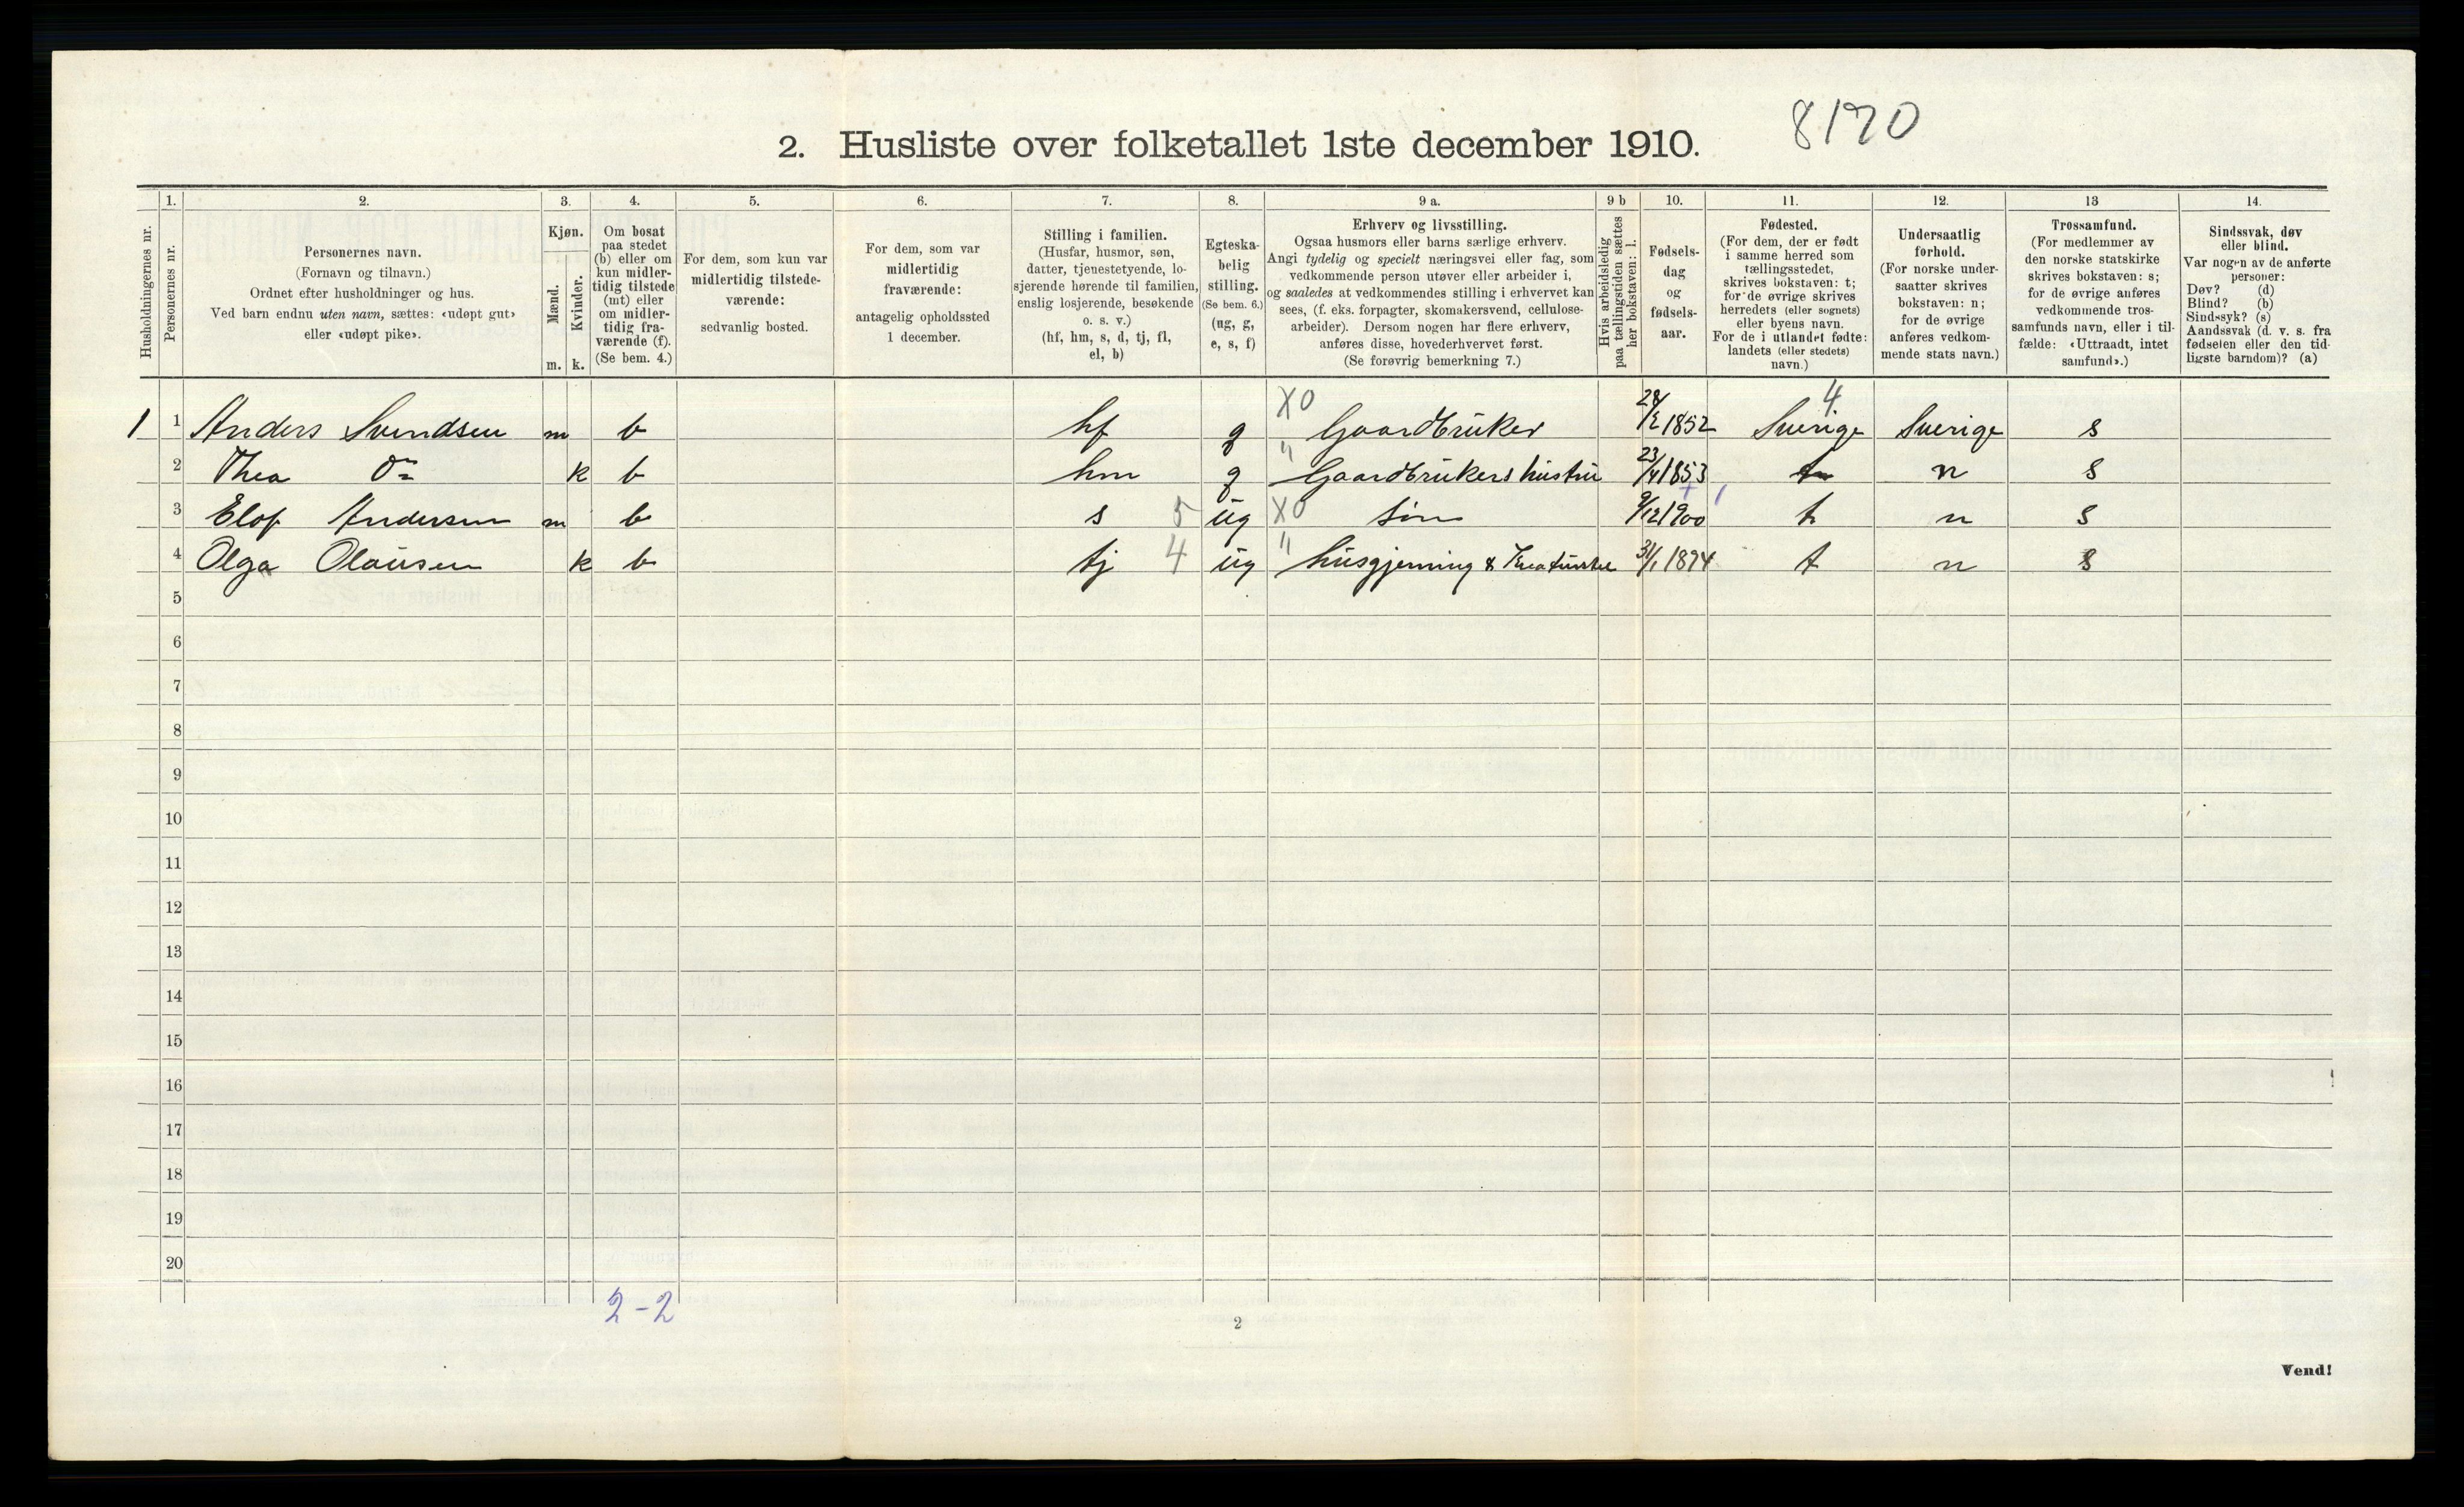 8170
2. Husliste over folketallet 1ste december 1910.
Husholdningernes nr.
1.
Personernes nr.
2.
Personernes navn.
(Fornavn og tilnavn.)
Ordnet efter husholdninger og hus.
Ved barn endnu uten navn, sættes: «udøpt gut»
eller «udøpt pike».
3.
Kjøn.
Mænd.
Kvinder.
m. k.
4.
Om bosat
paa stedet
(b) eller om
kun midler-
tidig tilstede
(mt) eller
om midler-
tidig fra-
værende (f).
(Se bem. 4.)
5.
For dem, som kun var
midlertidig tilstede-
værende:
sedvanlig bosted.
6.
For dem, som var
midlertidig
fraværende:
antagelig opholdssted
1 december.
7.
Stilling i familien.
(Husfar, husmor, søn,
datter, tjenestetyende, lo-
sjerende hørende til familien,
enslig losjerende, besøkende
o. s. v.)
(hf, hm, s, d, tj, fl,
el, b)
8.
Egteska-
belig
stilling.
(Se bem. 6.)
(ug, g,
e, s, f)
9 a.
Erhverv og livsstilling.
Ogsaa husmors eller barns særlige erhverv.
Angi tydelig og specielt næringsvei eller fag, som
vedkommende person utøver eller arbeider i,
og saaledes at vedkommendes stilling i erhvervet kan
sees, (f. eks. forpagter, skomakersvend, cellulose-
arbeider). Dersom nogen har flere erhverv,
anføres disse, hovederhvervet først.
(Se forøvrig bemerkning 7.)
9 b
Hvis arbeidsledig
paa tællingstiden sættes
her bokstaven: l.
10.
Fødsels-
dag
og
fødsels-
aar.
11.
Fødested.
(For dem, der er født
i samme herred som
tællingsstedet,
skrives bokstaven: t;
for de øvrige skrives
herredets (eller sognets)
eller byens navn.
For de i utlandet fødte:
landets (eller stedets)
navn.)
12.
Undersaatlig
forhold.
(For norske under-
saatter skrives
bokstaven: n;
for de øvrige
anføres vedkom-
mende stats navn.)
13
Trossamfund.
(For medlemmer av
den norske statskirke
skrives bokstaven: s;
for de øvrige anføres
vedkommende tros-
samfunds navn, eller i til-
fælde: «Uttraadt, intet
samfund».)
14.
Sindssvak, døv
eller blind.
Var nogen av de anførte
personer:
Døv? (d)
Blind? (b)
Sindssyk? (s)
Aandssvak (d. v. s. fra
fødselen eller den tid-
ligste barndom)? (a)
1 1 Anders Svendsen m b hf g X0 Gaardbruker 28/2 1852 4 Sverige Sverige s
2 Thea Do k b hm g " Gaardbrukers hustru 23/4 1853 t n s
3 Elof Andersen m b s 5 ug X0 Søn 9/12 1900 t n s
4 Olga Olausen k b tj 4 ug " husgjerning & Kreaturstel 31/1 1894 t n s
5
6
7
8
9
10
11
12
13
14
15
16
17
18
19
20
2-2
2
Vend!